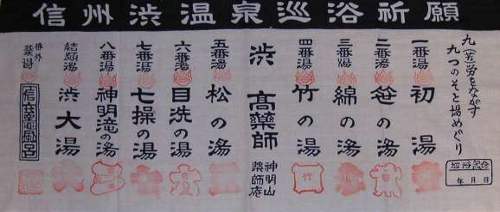 信州渋温泉巡浴祈願
九(苦)労をながす
九つのそと場めぐり
巡浴記念
年 月 日
一番湯
初湯
二番湯
笹の湯
三番湯
綿の湯
四番湯
竹の湯
渋高薬師
神明山
薬師庵
五番湯
松の湯
六番湯
目洗の湯
七番湯
七操の湯
八番湯
神明滝の湯
結願湯
渋大湯
番外